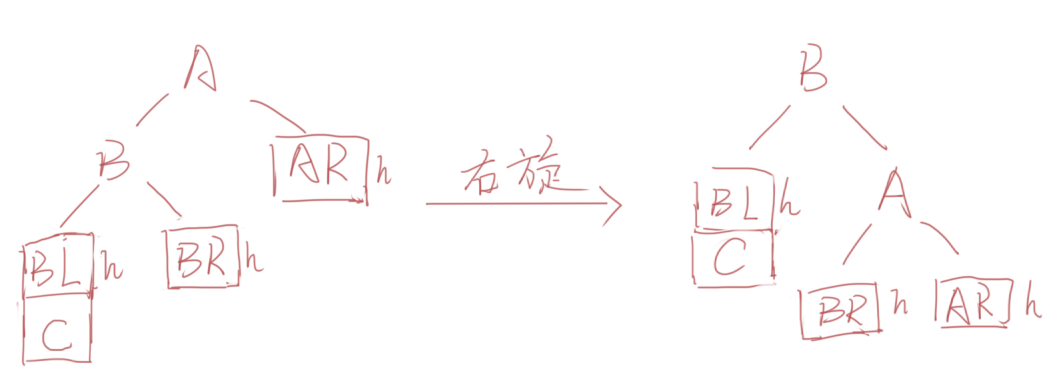 A
B
AR h
BL h
BR h
C
右旋
B
BL h
A
C
BR h
AR h